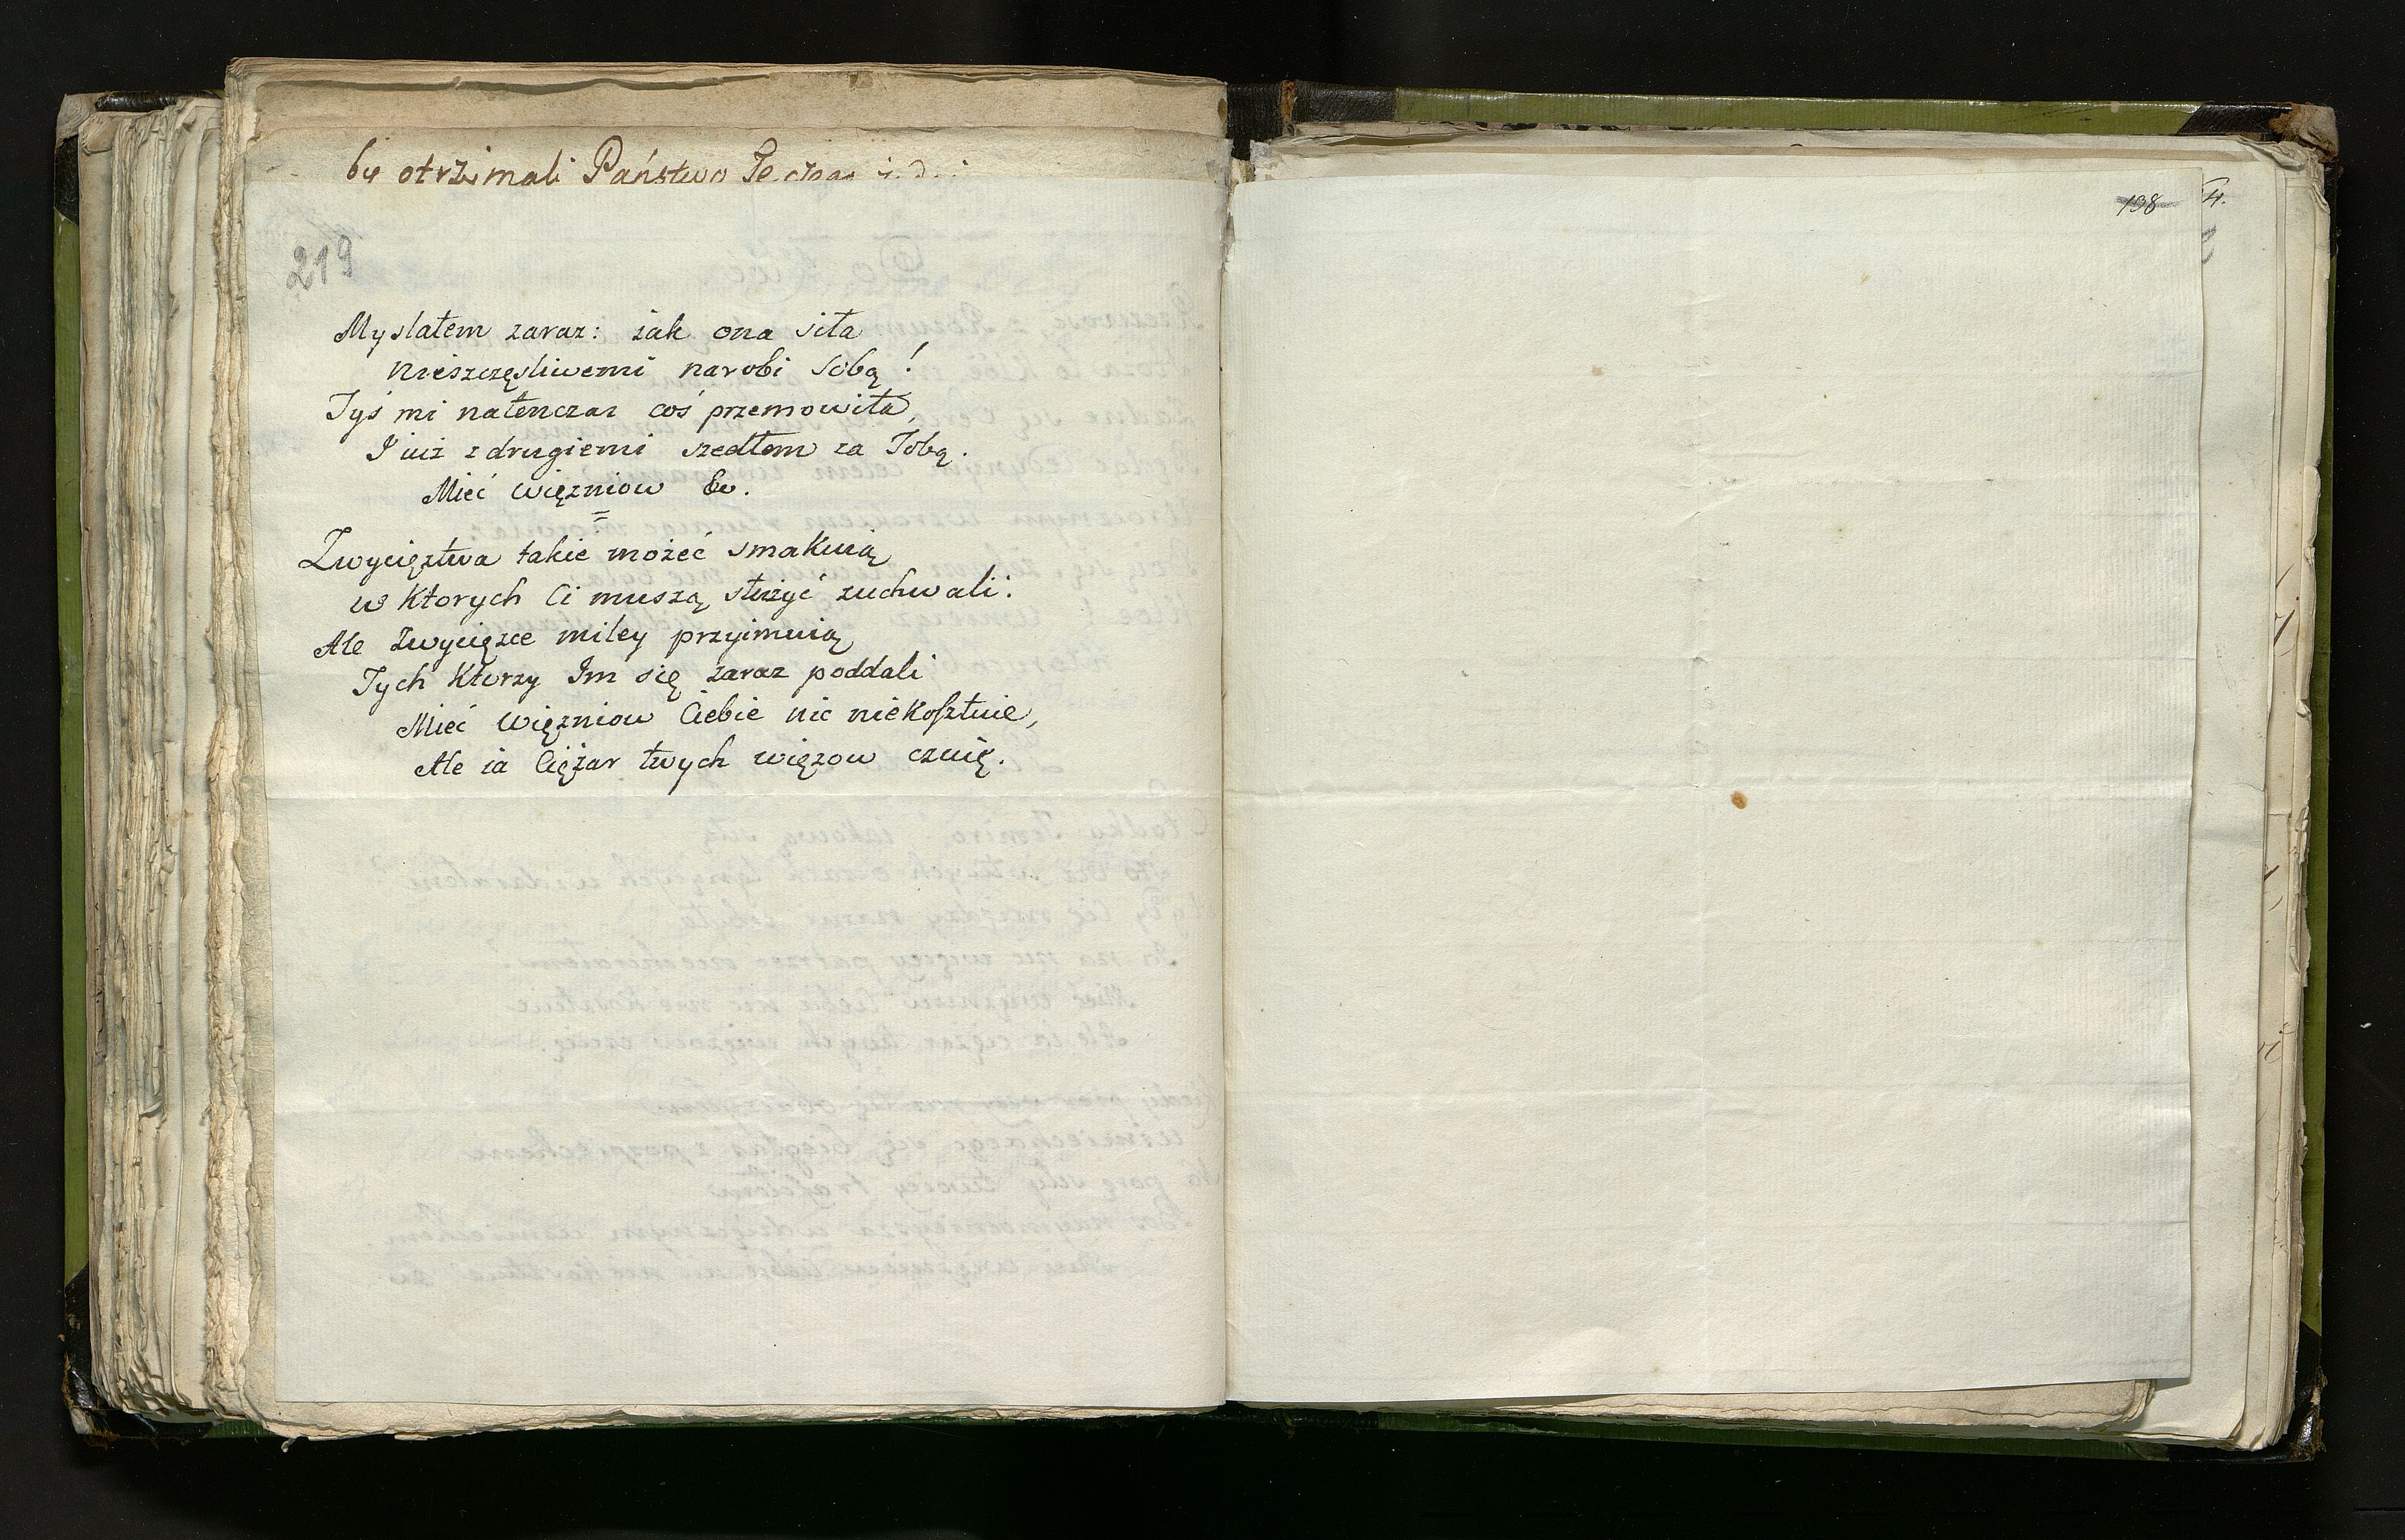 by otrzimali Państwo
219
Myslałem zaraz: iak ona siła
Nieszczęsliwemi narobi Sobą!
Tyś mi natenczas coś przemowiła,
I iuż z drugiemi szedłem za Tobą.
Mieć więzniow &c.
=
Zwycięztwa takie możeć smakuią
w Ktorych Ci muszą służyć zuchwali:
Ale Zwycięzce miley przyimuią
Tych Ktorzy Im się zaraz poddali
Mieć Więzniow Ciebie nic niekosztuie,
Ale ia Ciężar twych więzow czuię.
138
4.